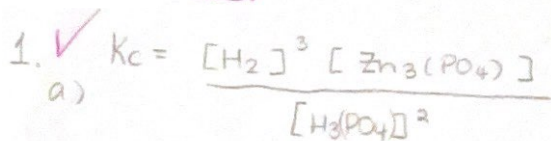 1. ✓ Kc = [H₂]³ [Zn₃(PO₄)]
a) [H₃(PO₄)]²